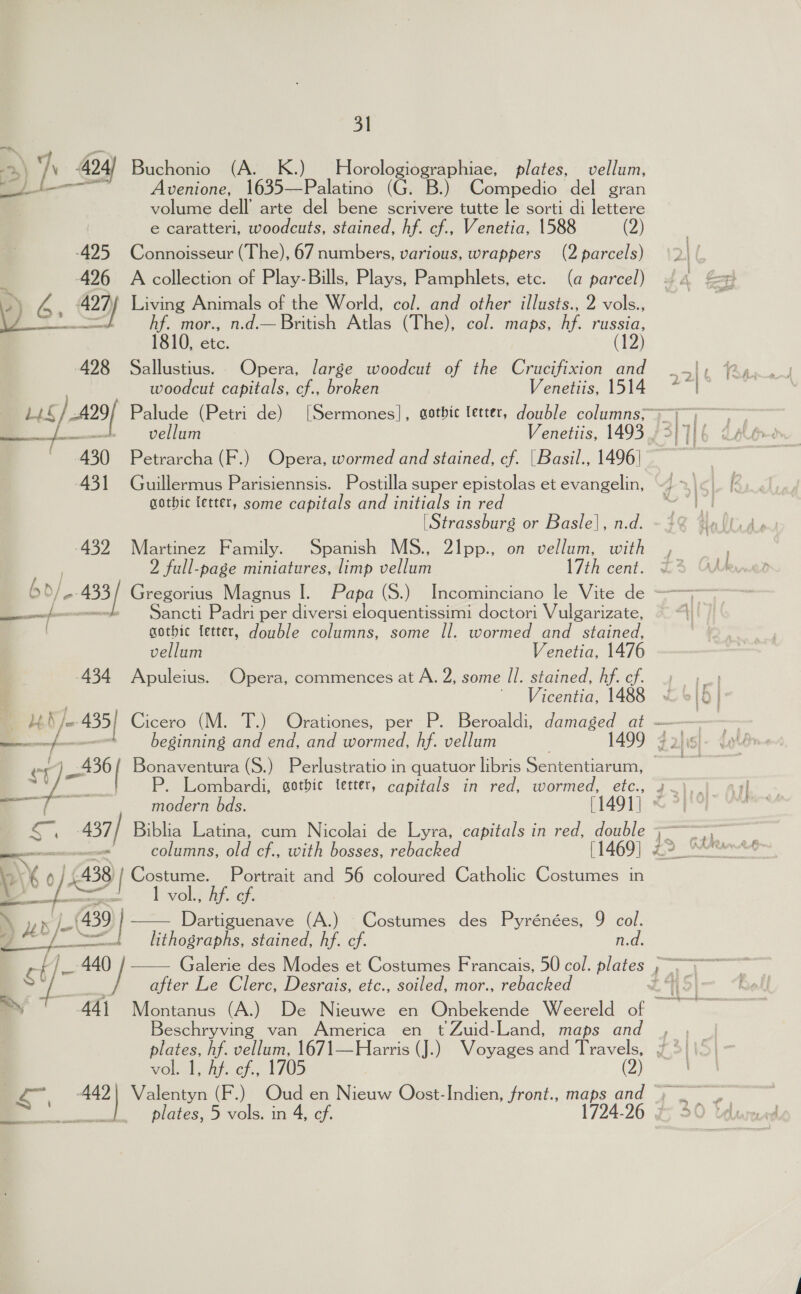 31
424 Buchonio (A. K.) Horologiographiae, plates, vellum,
Avenione, 1635—Palatino (G. B.) Compedio del gran
volume dell' arte del bene scrivere tutte le sorti di lettere
e caratteri, woodcuts, stained, hf. cf., Venetia, 1588 (2)
425 Connoisseur (The), 67 numbers, various, wrappers (2 parcels)
426 A collection of Play-Bills, Plays, Pamphlets, etc. (a parcel)
427 Living Animals of the World, col. and other illusts., 2 vols.,
hf. mor., n.d.—British Atlas (The), col. maps, hf. russia,
1810, etc. (12)
428 Sallustius. Opera, large woodcut of the Crucifixion and
woodcut capitals, cf., broken Venetiis, 1514
429 Palude (Petri de) [Sermones], gothic letter, double columns,
vellum Venetiis, 1493
430 Petrarcha (F.) Opera, wormed and stained, cf. [Basil., 1496]
431 Guillermus Parisiennsis. Postilla super epistolas et evangelin,
gothic letter, some capitals and initials in red
[Strassburg or Basle], n.d.
432 Martinez Family. Spanish MS., 21pp., on vellum, with
2 full-page miniatures, limp vellum 17th cent.
433 Gregorius Magnus I. Papa (S.) Incominciano le Vite de
Sancti Padri per diversi eloquentissimi doctori Vulgarizate,
gothic letter, double columns, some ll. wormed and stained,
vellum Venetia, 1476
434 Apuleius. Opera, commences at A. 2, some ll. stained, hf. cf.
Vicentia, 1488
435 Cicero (M. T.) Orationes, per P. Beroaldi, damaged at
beginning and end, and wormed, hf. vellum 1499
436 Bonaventura (S.) Perlustratio in quatuor libris Sententiarum,
P. Lombardi, gothic letter, capitals in red, wormed, etc.,
modern bds. [1491]
437 Biblia Latina, cum Nicolai de Lyra, capitals in red, double
columns, old cf., with bosses, rebacked [1469]
438 Costume. Portrait and 56 coloured Catholic Costumes in
1 vol., hf. cf.
439 —— Dartiguenave (A.) Costumes des Pyrénées, 9 col.
lithographs, stained, hf. cf. n.d.
440 —— Galerie des Modes et Costumes Francais, 50 col. plates
after Le Clerc, Desrais, etc., soiled, mor., rebacked
441 Montanus (A.) De Nieuwe en Onbekende Weereld of
Beschryving van America en t'Zuid-Land, maps and
plates, hf. vellum, 1671—Harris (J.) Voyages and Travels,
vol. 1, hf. cf., 1705 (2)
442 Valentyn (F.) Oud en Nieuw Oost-Indien, front., maps and
plates, 5 vols. in 4, cf. 1724-26